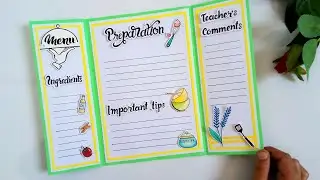 Menu
Ingredients
Preparation
Important tips
Teacher's
Comments